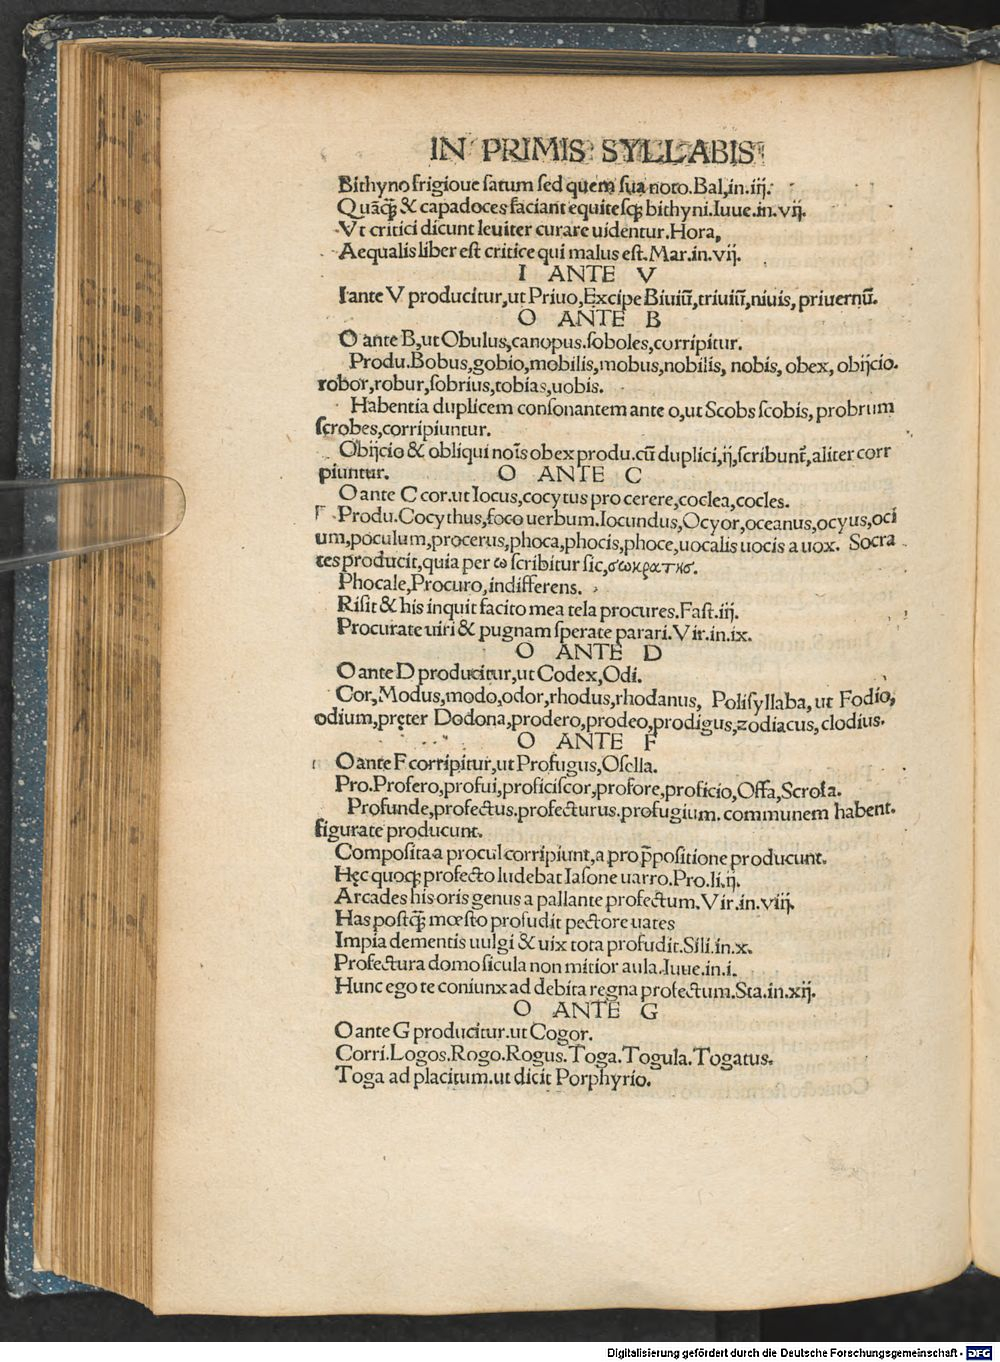 IN PRIMIS SYLLABIS
Bithyno frigioue satum sed quem sua noto.Bal,in.iij.
Quãq̃ & capadoces faciant equitesq; bithyni.Iuue.in.vij.
Vt critici dicunt leuiter curare uidentur.Hora,
Aequalis liber est critice qui malus est.Mar.in.vij.
I ANTE V
I ante V producitur,ut Priuo,Excipe Biuiũ,triuiũ,niuis,priuernũ.
O ANTE B
O ante B,ut Obulus,canopus.soboles,corripitur.
Produ.Bobus,gobio,mobilis,mobus,nobilis, nobis, obex, obijcio.
robor,robur,sobrius,tobias,uobis.
Habentia duplicem consonantem ante o,ut Scobs scobis, probrum
scrobes,corripiuntur.
Obijcio & obliqui noĩs obex produ.cũ duplici,ij,scribunt̃,aliter corr
piuntur. O ANTE C
O ante C cor.ut Iocus,cocytus pro cerere,coclea,cocles.
Produ.Cocythus,foco uerbum.Iocundus,Ocyor,oceanus,ocyus,oci
um,poculum,procerus,phoca,phocis,phoce,uocalis uocis a uox. Socra
tes producit,quia per ω scribitur sic,σωκρατησ.
Phocale,Procuro,indifferens.
Risit & his inquit facito mea tela procures.Fast.iij.
Procurate uiri & pugnam sperate parari.Vir.in.ix.
O ANTE D
O ante D producitur,ut Codex,Odi.
Cor,Modus,modo,odor,rhodus,rhodanus, Polisyllaba,ut Fodio,
odium,pręter Dodona,prodero,prodeo,prodigus,zodiacus,clodius.
O ANTE F
O ante F corripitur,ut Profugus,Ofella.
Pro.Profero,profui,proficiscor,profore,proficio,Offa,Scrofa.
Profunde,profectus.profecturus.profugium.communem habent.
figurate producunt.
Composita a procul corripiunt,a pro p̃positione producunt.
Hęc quoq; profecto ludebat Iasone uarro.Pro.li.ij.
Arcades his oris genus a pallante profectum.Vir.in.viij.
Has postq̃ mœsto profudit pectore uates
Impia dementis uulgi & uix tota profudit.Sili.in.x.
Profectura domo sicula non mitior aula.Iuue.in.i.
Hunc ego te coniunx ad debita regna profectum.Sta.in.xij.
O ANTE G
O ante G producitur.ut Cogor.
Corri.Logos.Rogo.Rogus.Toga.Togula.Togatus.
Toga ad placitum.ut dicit Porphyrio.
Digitalisierung gefördert durch die Deutsche Forschungsgemeinschaft - DFG